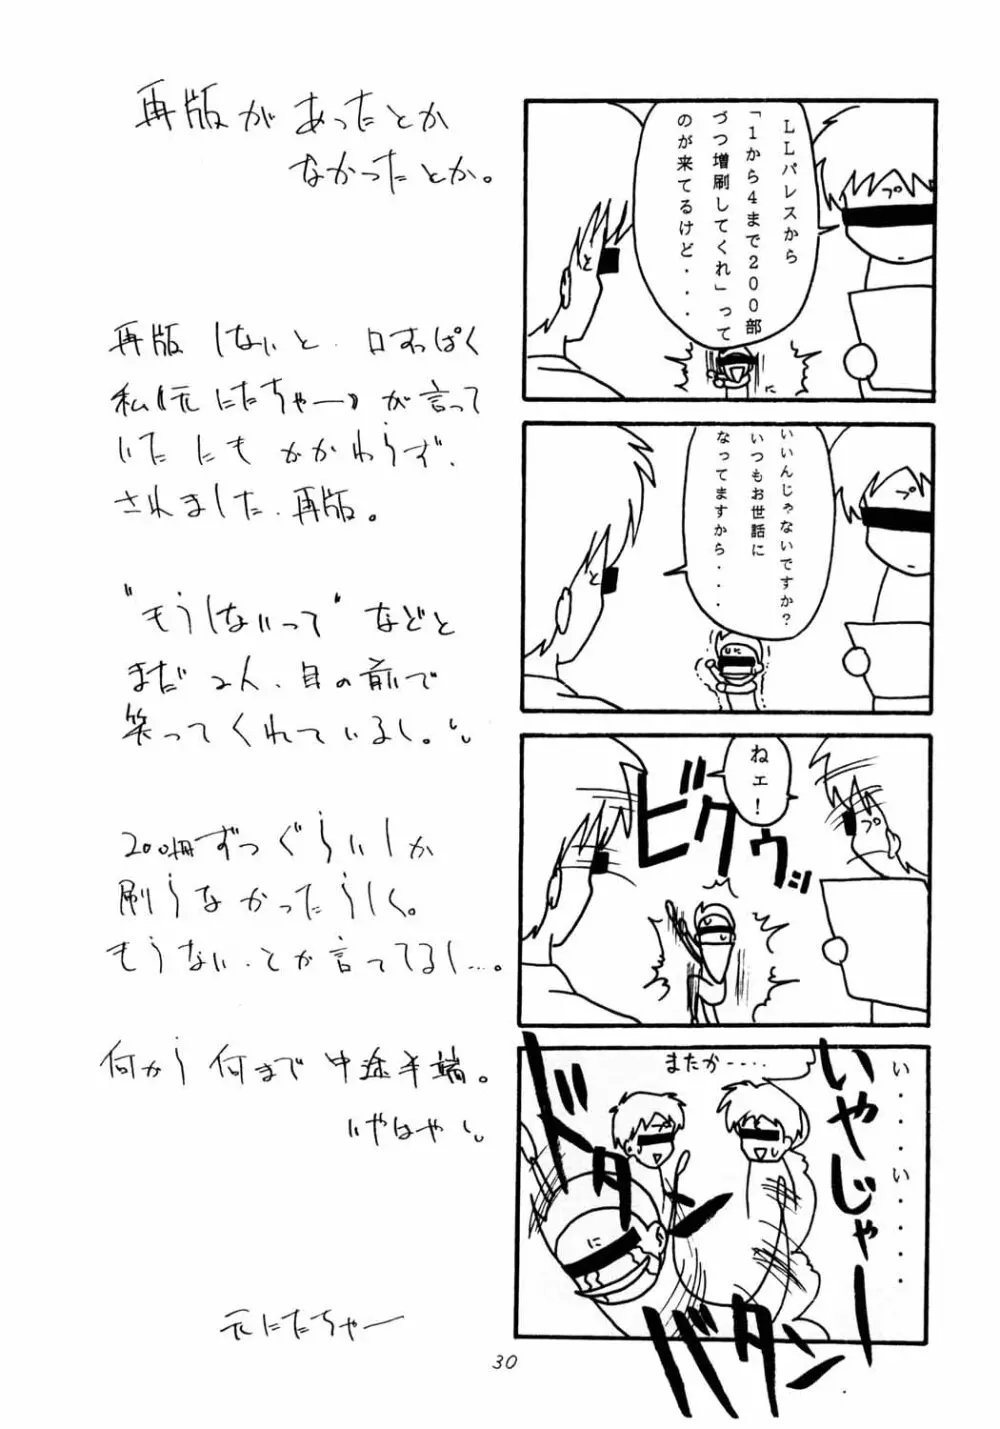 再版があったとか
なかったとか。
再版しないと、口すっぱく
私《元にたちゃー》が言って
いたにもかかわらず、
されました、再版。
"もうしないって"などと
まだ2人、目の前で
笑ってくれているし。
200冊ずつぐらいしか
刷らなかったらしく。
もうない、とか言ってるし…。
何から何まで中途半端。
いやはや。
元にたちゃー
30
LLパレスから
「1から4まで200部
づつ増刷してくれ」って
のが来てるけど・・・
プ
と
に
いいんじゃないですか?
いつもお世話に
なってますから・・・
プ
と
に
ねェ!
ビクゥッ
プ
い・・・い・・・・
いやじゃー
またか・・・・
プ
に
ドタン
バタン